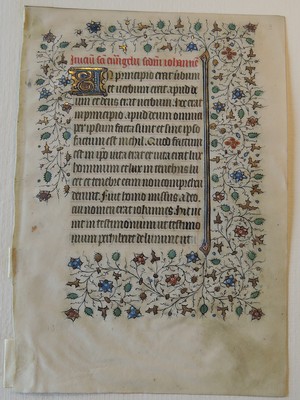 Iniciū sci euāgelii scdm iohannē
In principio erat uerbum
et uerbum erat apud de
um et deus erat uerbum. hoc erat
in principio apud deum omnia
per ipsum facta sunt et sine ipso
factum est nichil. Quod factum
est in ipo uita erat et uita erat lux
hominum et lux in tenebris lu
cet et tenebre eam non comprehen
derunt. Fuit homo missus a deo
cui nomen erat iohannes. hic ue
nit in testimonium ut testimo
nium perhiberet de lumine ut